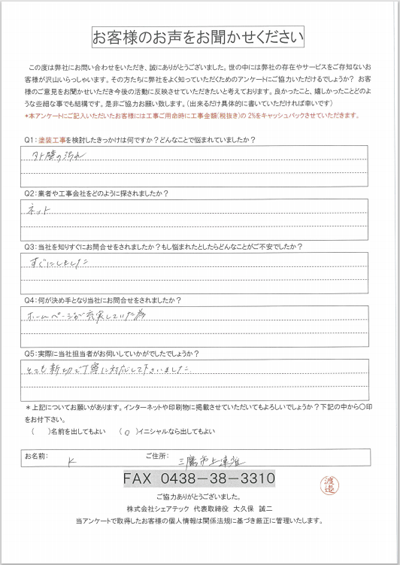 お客様のお声をお聞かせください
この度は弊社にお問い合わせをいただき、誠にありがとうございました。世の中には弊社の存在やサービスをご存知ないお
客様が沢山いらっしゃいます。その方たちに弊社をよく知っていただくためのアンケートにご協力いただけるでしょうか？ お客
様のご意見をお聞かせいただき今後の活動に反映させていただきたいと考えております。良かったこと、嬉しかったことどのよ
うな些細な事でも結構です。是非ご協力お願い致します。（出来るだけ具体的に書いていただければ幸いです）
*本アンケートにご記入いただいたお客様には工事ご用命時に工事金額(税抜き)の 2%をキャッシュバックさせていただきます。
Q1：塗装工事を検討したきっかけは何ですか？どんなことで悩まれていましたか？
外壁の汚れ
Q2：業者や工事会社をどのように探されましたか？
ネット
Q3：当社を知りすぐにお問合せをされましたか？もし悩まれたとしたらどんなことがご不安でしたか？
すぐにしました
Q4：何が決め手となり当社にお問合せをされましたか？
ホームページが充実していた為
Q5：実際に当社担当者がお伺いしていかがでしたでしょうか？
とても親切で丁寧に対応して下さいました
＊上記についてお願いがあります。インターネットや印刷物に掲載させていただいてもよろしいでしょうか？下記の中から〇印
をお付下さい。
（　）名前を出してもよい　（〇）イニシャルなら出してもよい
お名前： K ご住所： 三鷹市上連雀
FAX 0438-38-3310
渡邉
ご協力ありがとうございました。
株式会社シェアテック 代表取締役 大久保 誠二
当アンケートで取得したお客様の個人情報は関係法規に基づき厳正に管理いたします。